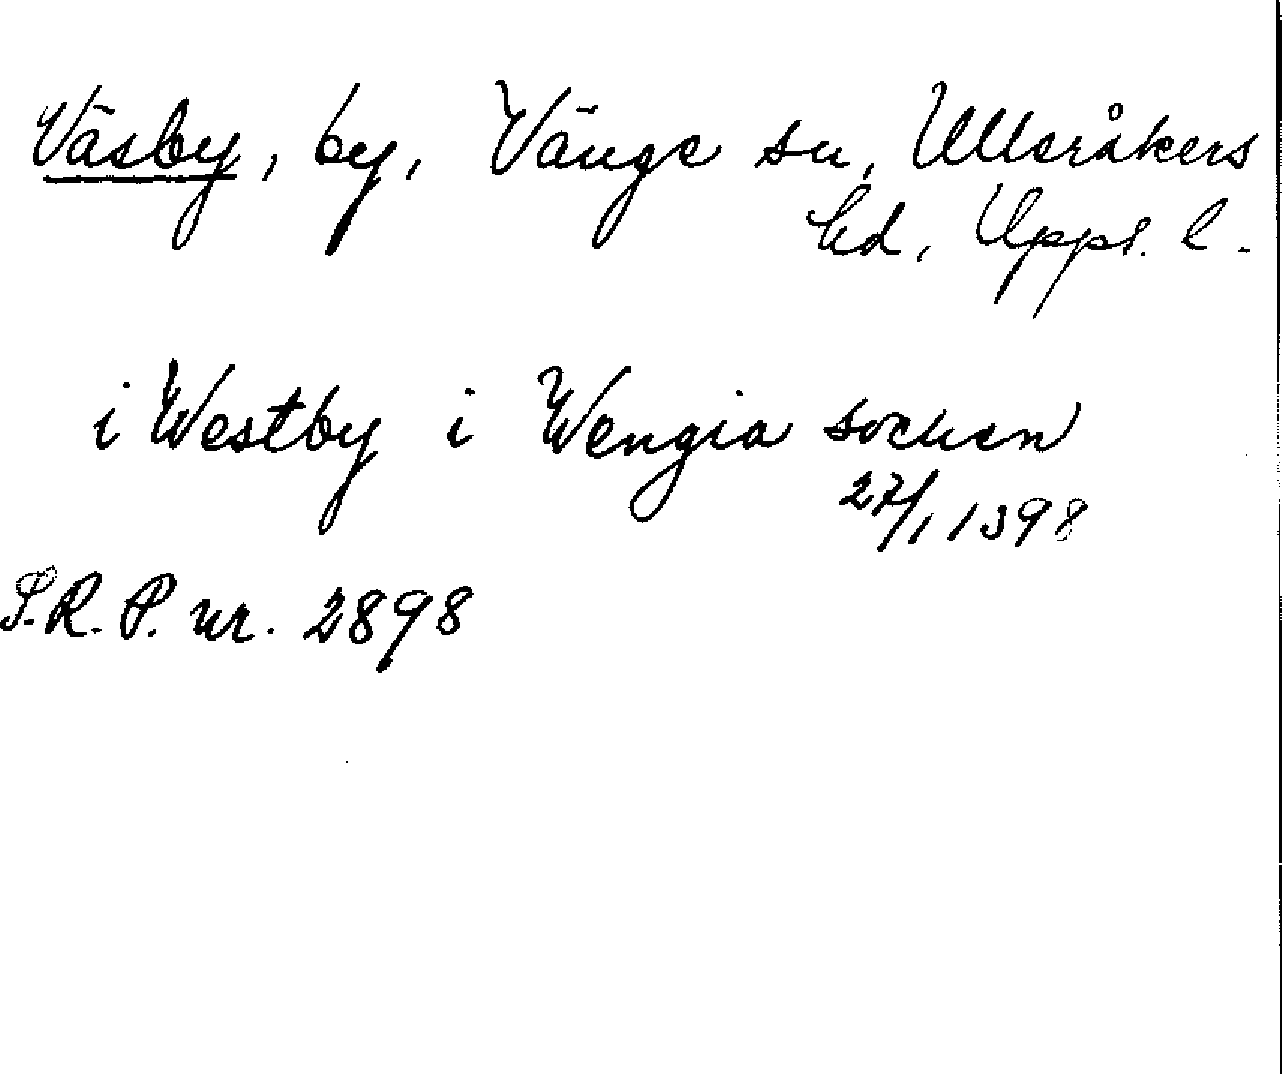 Väsby, by, Vänge sn, Ulleråkers
hd, Upps. l.
i Westby i Wengia sochen
27/1 1398
S.R.P. nr. 2898